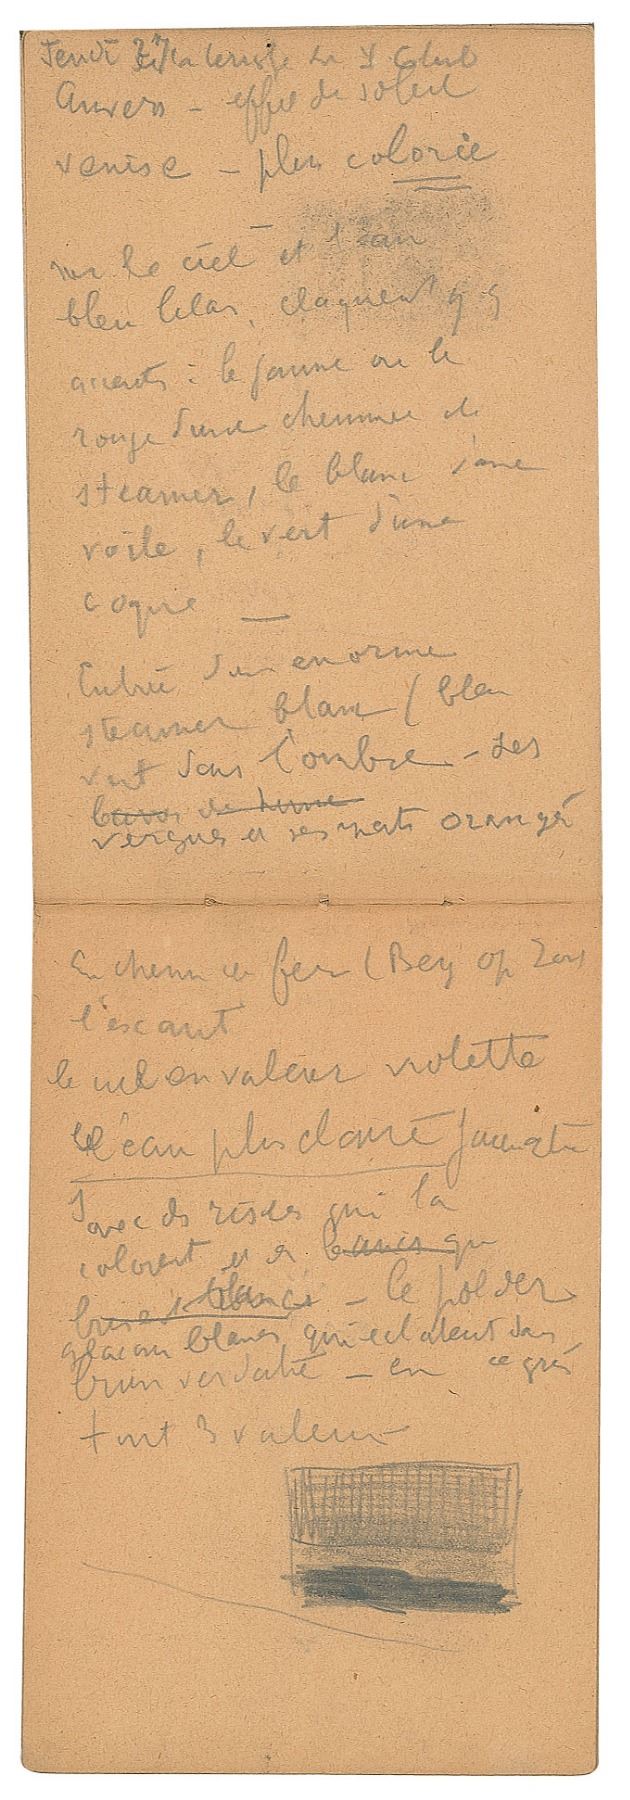 Jeudi 27 la terrasse du Y Club
Anvers – effet de soleil
venise – plus colorié
sur le ciel et l'eau
bleu lilas, claquent qq
accents : le jaune ou le
rouge d'une cheminée de
steamer, le blanc d'une
voile, le vert d'une
coque —
Entrée d'un enorme
steamer blanc / bleu
vert dans l'ombre – ses
vergues et ses mats orangés
En chemin de fer (Berg op Zoom
l'escaut
le ciel en valeur violette
l'eau plus claire jaunatre
avec des risées qui la
colorent et des qq
– le polder
glacons blancs qui eclatent dans
brun verdatre – en ce gris
tout 3 valeurs